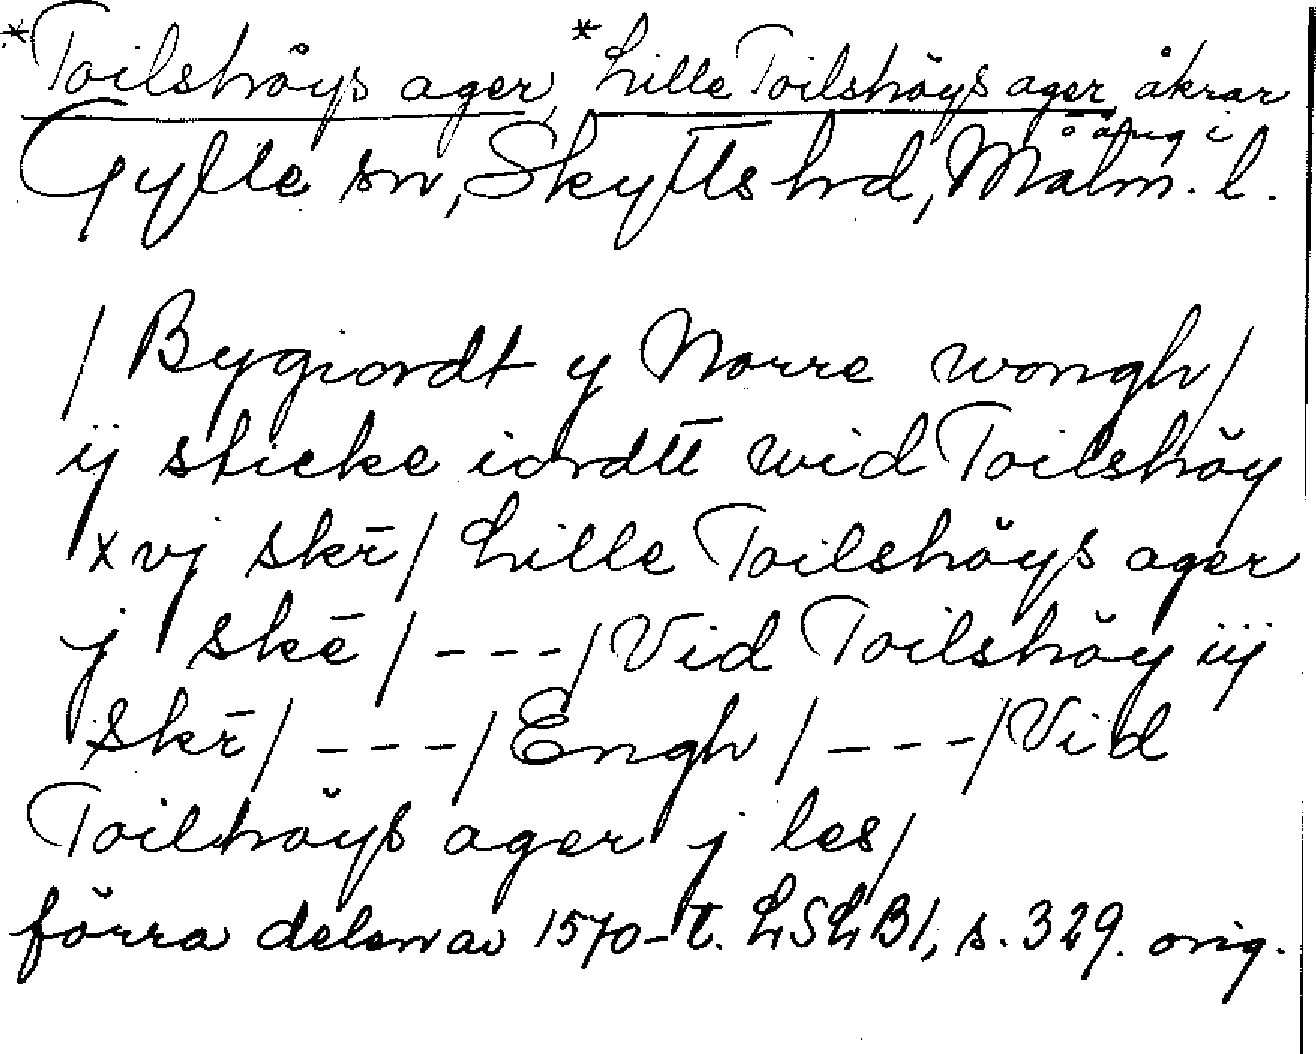 *Toilshöys ager, *Lille Toilshöys ager åkrar
o äng i
Gylle sn, Skytts hd, Malm. l.
/ Bygiordt y Norre wongh/
ij sticke iordtt wid Toilshöy
xvj skr̄/ Lille Toilshöys ager
j skē /---/ Vid Toilshöy iij
skr̄/---/ Engh /---/ Vid
Toilhöys ager j les/
förra delen av 1570-t. LSLB1, s. 329. orig.